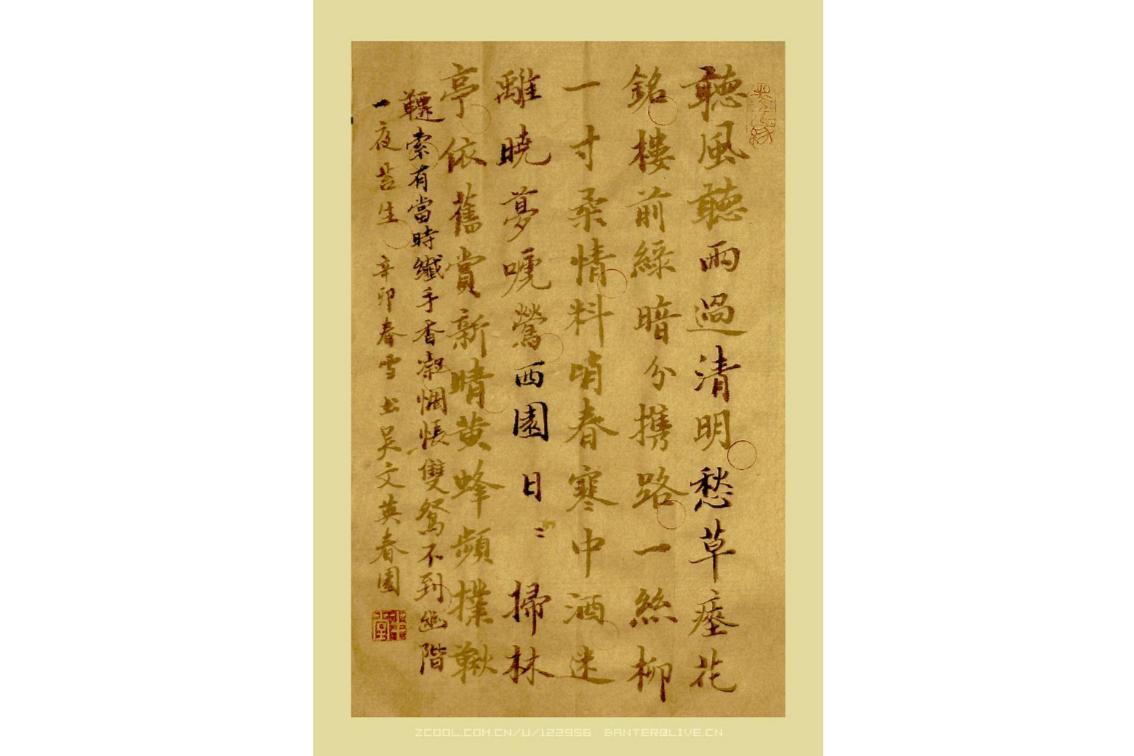 聽風聽雨過清明愁草瘞花
銘樓前綠暗分攜路一絲柳
一寸柔情料峭春寒中酒迷
離曉夢嚦鶯西園日〻掃林
亭依舊賞新晴黃蜂頻撲鞦
韆索有當時纖手香凝惆悵雙鴛不到幽階
一夜苔生 辛卯春雪 書吳文英春園
ZCOOL.COM.CN/U/122956 BANTER@LIVE.CN